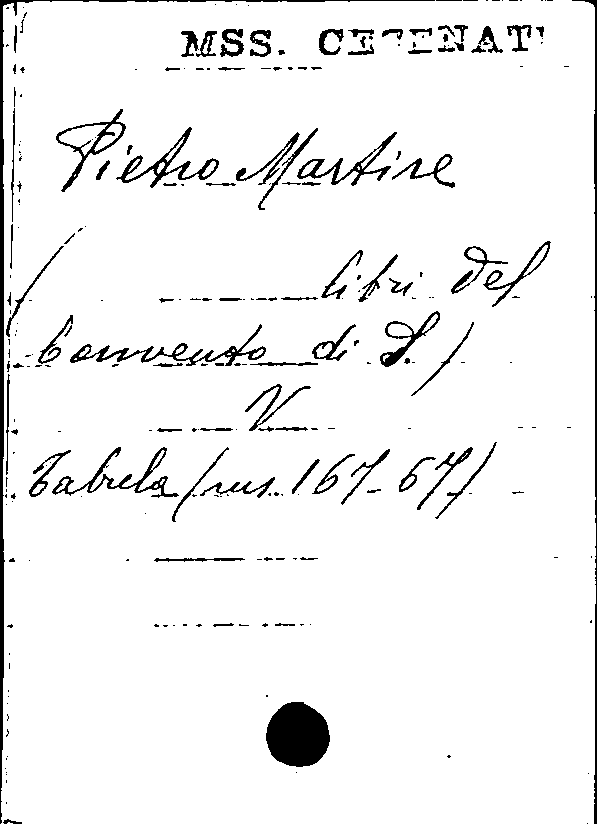 MSS. CESENATI
Pietro Martire
( libri del
Convento di S. )
V
Tabula (ms. 167-67)